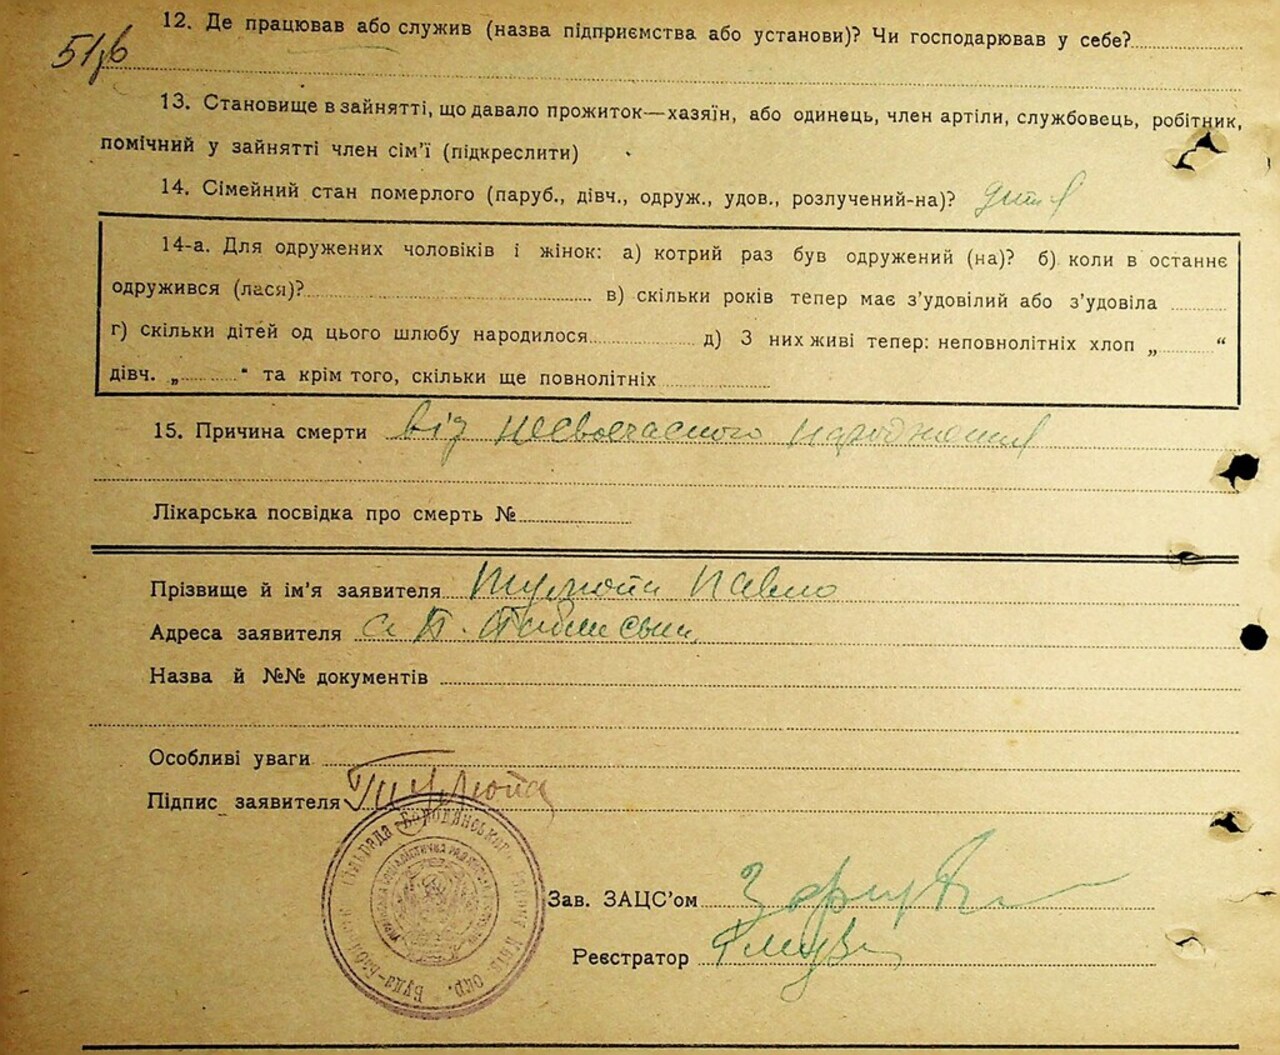 12. Де працював або служив (назва підприємства або установи)? Чи господарював у себе?
51зв
13. Становище в зайнятті, що давало прожиток—хазяїн, або одинець, член артіли, службовець, робітник,
помічний у зайнятті член сім'ї (підкреслити)
14. Сімейний стан померлого (паруб., дівч., одруж., удов., розлучений-на)? дитя
14-а. Для одружених чоловіків і жінок: а) котрий раз був одружений (на)? б) коли в останнє
одружився (лася)? в) скільки років тепер має з'удовілий або з'удовіла
г) скільки дітей од цього шлюбу народилося д) З них живі тепер: неповнолітніх хлоп „ “
дівч. „ “ та крім того, скільки ще повнолітніх
15. Причина смерти від несвоєчасного народження
Лікарська посвідка про смерть №
Прізвище й ім'я заявителя Павло
Адреса заявителя с
Назва й №№ документів
Особливі уваги
Підпис заявителя
Буда-Бабинська сільрада Бородянського району Київ. окр.
Зав. ЗАЦС'ом
Реєстратор